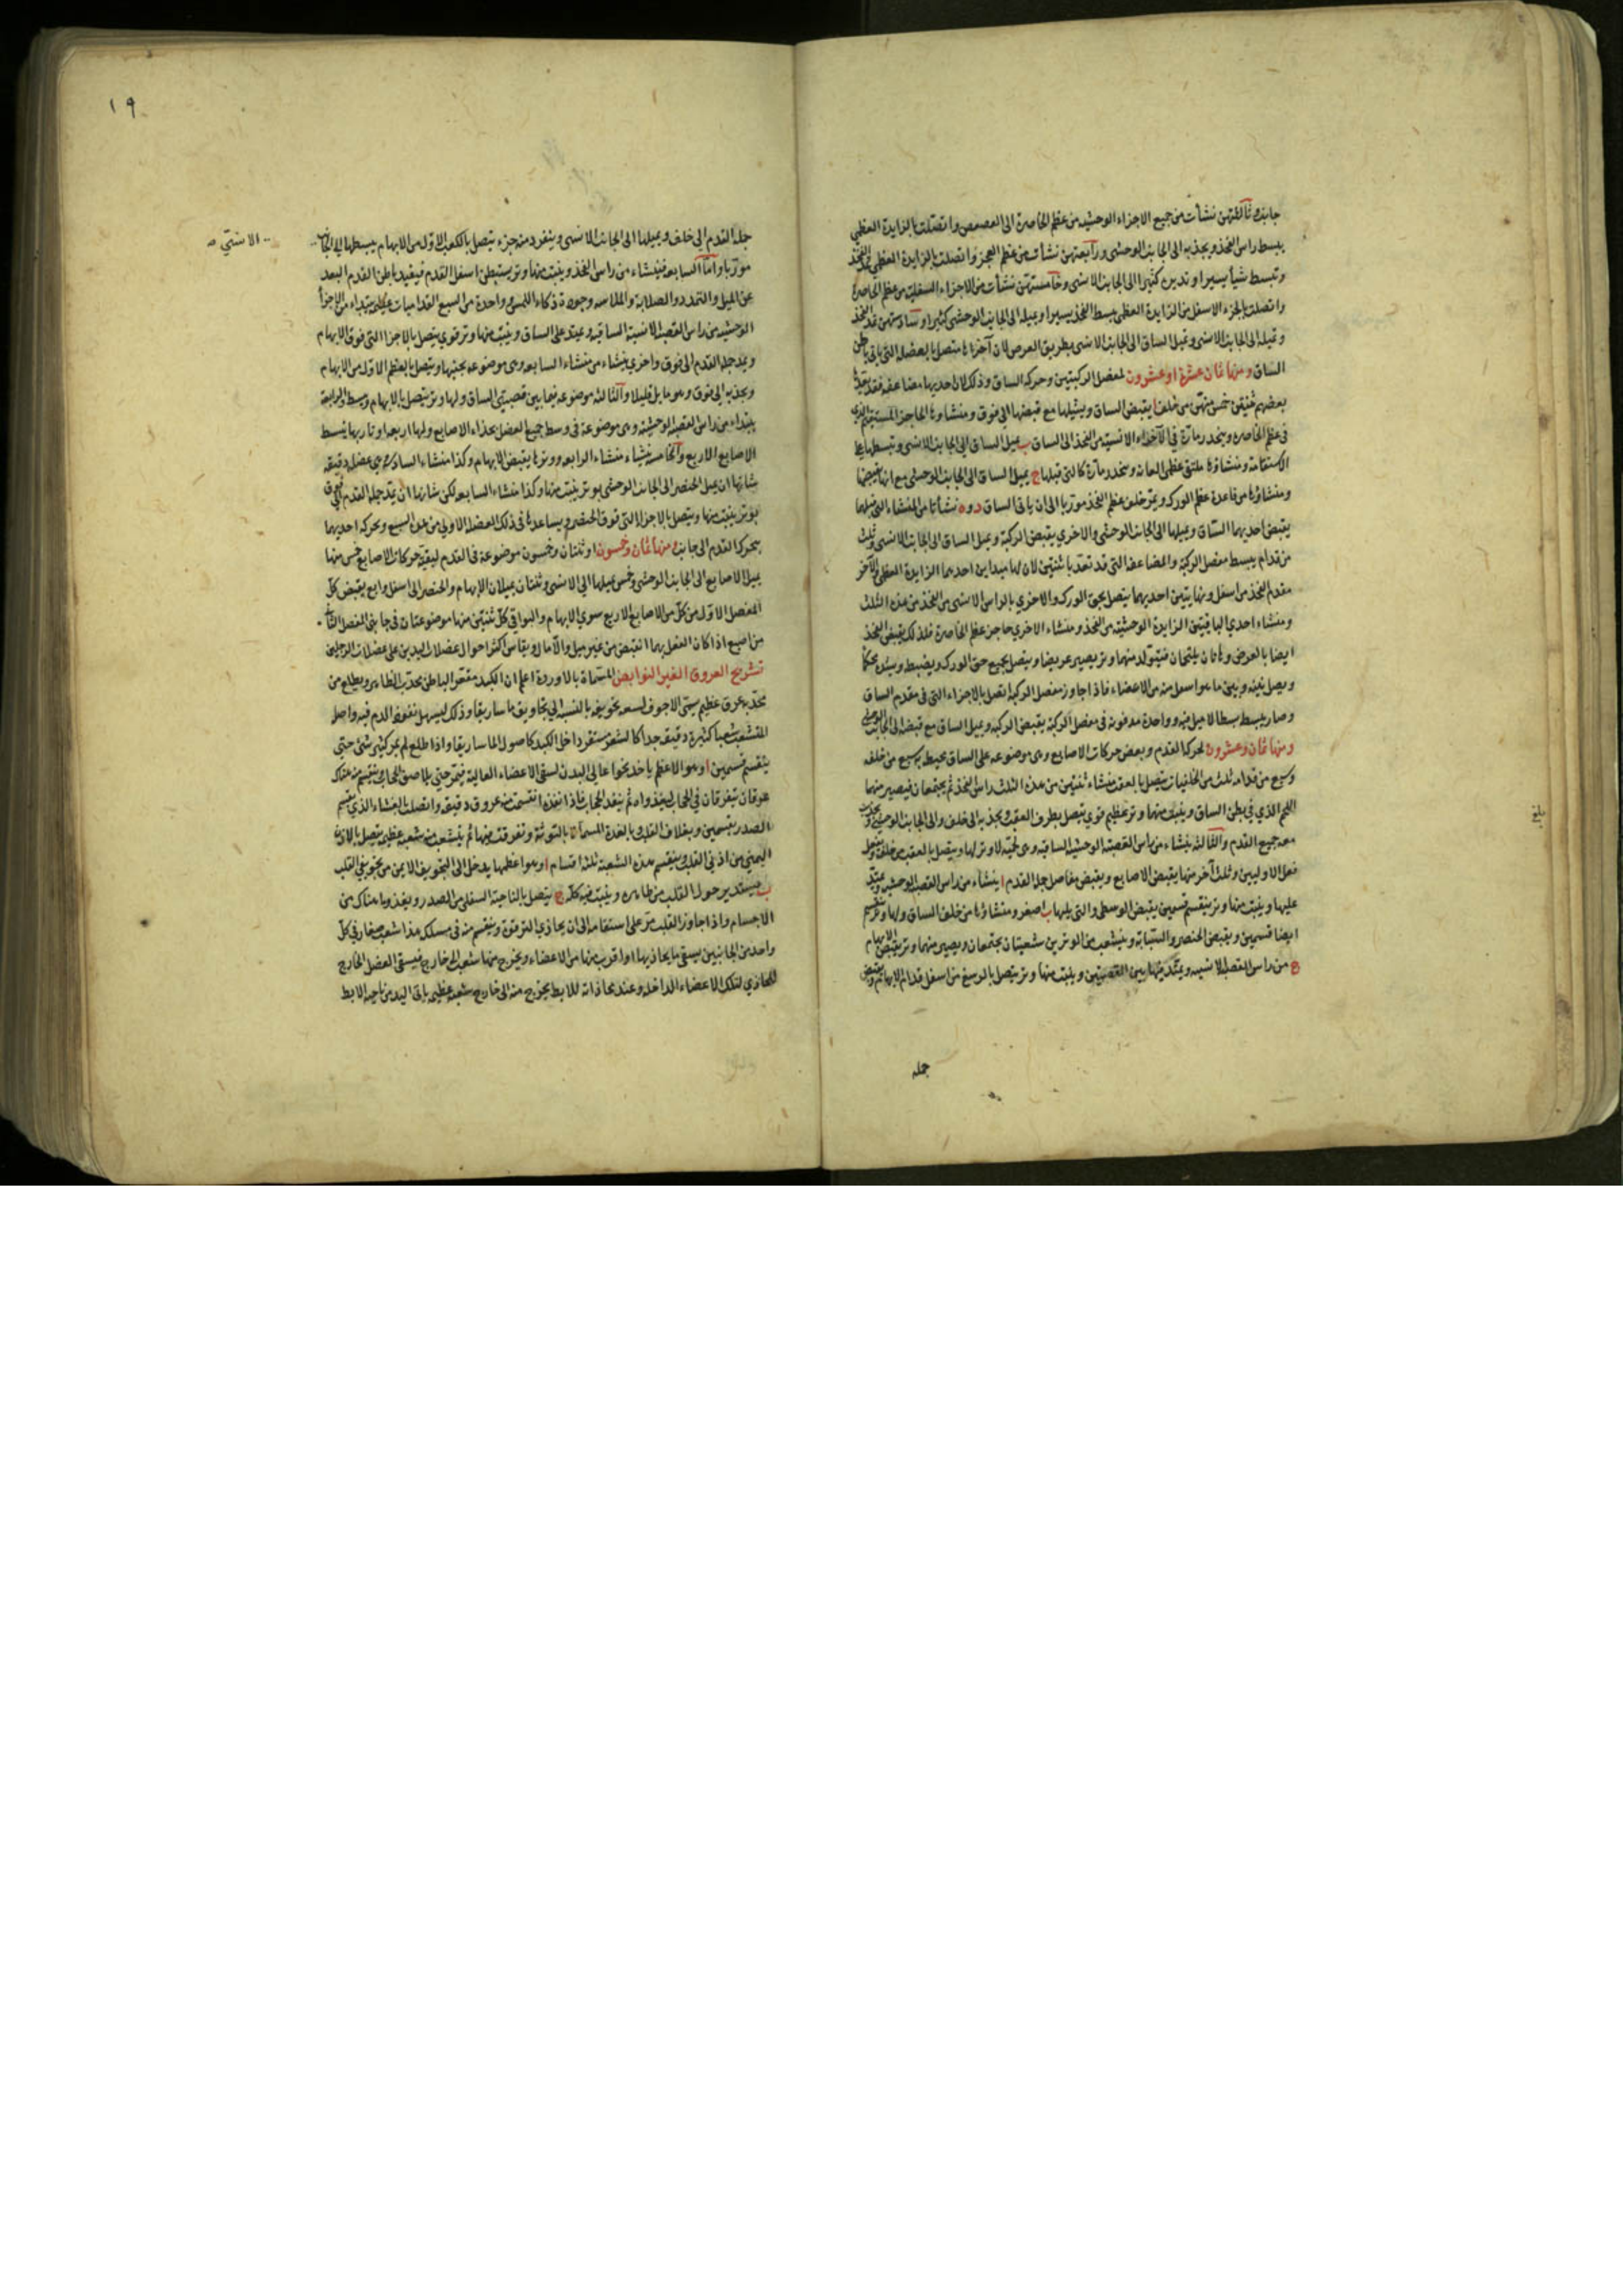 جانبه وثالثتهن نشأت من جميع الاجزاء الوحشيه من عظم الخاصرة الى العصعص واتصلت بالزايدة العظمي
يبسط راس الفخذ ويجذبه الى الجانب الوحشى ورابعتهن نشأت من عظم العجز واتصلت بالزايدة العظمي
وتبسط شيأ يسيرا وتديره كثيرا الى الجانب الانسى وخامستهن نشأت من الاجزاء السفليه من عظم الخاصرة
واتصلت بالجزء الاسفل من الزايدة العظمى يبسط الفخذ يسيرا ويميله الى الجانب الوحشى كثيرا وسادستهن تمد الفخذ
وتميله الى الجانب الانسى وتميل الساق الى الجانب الانسى بطريق العرض لان آخرها متصل بالعضله التى باقى باطن
الساق ومنها ثمان عشرة او عشرون لمفصل الركبتين وحركه الساق وذلك لان احديها مضاعفه فقد
بعضهم ثنتين خمس منهن من خلف ا يقبض الساق ويشيلها مع قبضها الى فوق ومنشاؤها الحاجز المستقيم الذى
فى عظم الخاصره وينحدر مارة فى الاجزاء الانسية من الفخذ الى الساق ب يميل الساق الى الجانب الانسى وتبسطها على
الاستقامة ومنشاؤها ملتقى عظمى العانه وينحدر مارة كالتى قبلها ج يميل الساق الى الجانب الوحشى مع انها تقبضها
ومنشاؤها من قاعدة عظم الورك ويمر خلف عظم الفخذ موربا الى ان ياتى الساق د و ه نشأتا من المنشاء التى قبلهما
يقبض احديهما الساق ويميلها الى الجانب الوحشى والاخرى يقبض الركبة ويميل الساق الى الجانب الانسى وثلث
من قدام يبسط مفصل الركبة والمضاعفه التى قد تعد باثنتين لان لها مبداين احديهما الزايدة العظمى والاخر
مقدم الفخذ من اسفل ونهايتين احديهما يتصل بحق الورك والاخرى بالراس الانسى من الفخذ من هذه الثلث
ومنشاء احدى الباقيتين الزايدة الوحشيه من الفخذ ومنشاء الاخرى حاجز عظم الخاصرة فلذلك يقبض الفخذ
ايضا بالعرض وهاتان يلتحمان فيتولد منهما وتر يصير عريضا ويتصل بجميع حق الورك ويضبط ويشده محكما
ويصل بينه وبين ما هو اسفل منه من الاعضاء فاذا جاوز مفصل الركبة اتصل بالاجزاء التى فى مقدم الساق
وصار يبسط بسطا لا ميل فيه وواحدة مدفونه فى مفصل الركبة يقبض الركبه ويميل الساق مع قبضه الى الجانب الوحشى
ومنها ثمان وعشرون لحركه القدم وبعض حركات الاصابع وهى موضوعه على الساق يحيط به سبع من خلفه
وسبع من قدامه ثلث من الخلفيات يتصل بالعقب منشاء ثنتين من هذه الثلث راس الفخذ ثم يجتمعان فيصير منهما
اللحم الذى فى بطن الساق وينبت منهما وتر عظيم قوى يتصل بطرف العقب ويجذبه الى خلف والى الجانب الوحشى
معه جميع القدم والثالثه ينشاء من راس القصبة الوحشيه الساقيه وهى لحمية لا وتر لها ويتصل بالعقب من خلفه
فعل الاوليين وثلث آخر منها يقبض الاصابع ويقبض مفاصل جملة القدم ا ينشاء من راس القصبه الوحشيه ويمتد
عليها وينبت منها وتر ينقسم قسمين يقبض الوسطى والتى يليها ب اصغر ومنشاؤها من خلف الساق ولها وتر ينقسم
ايضا قسمين ويقبض الخنصر والسبابه وينشعب من الوترين شعبتان يجتمعان ويصير منهما وتر يقبض الابهام
ج من راس القصبه الانسيه ويمتد فيما بين القصبتين وينبت منها وتر يتصل بالرسغ من اسفل قدام الابهام ويقبض
جملة
بلغ
١٩
جملة القدم الى خلف ويميلها الى الجانب الانسى وينفرد منه جزء يتصل بالكعب الاول من الابهام يبسطها الى الجانب
الانسى صح
موربا واما السابعه فينشاء من راس الفخذ وينبت منها وتر يستبطن اسفل القدم فيفيد باطن القدم البعد
عن الميل والتمدد والصلابة والملاسه وجودة ذكاء اللمس وواحدة من السبع القداميات عظيمه يبتداء من الاجزا
الوحشيه من راس القصبه الانسية الساقيه ويمتد على الساق وينبت منها وتر قوى يتصل بالاجزا التى فوق الابهام
ويمد جملة القدم الى فوق واخرى ينشاء من منشاء السابعه وهى موضوعه بجنبها ويتصل بالعظم الاول من الابهام
ويجذبه الى فوق وهو مايل قليلا والثالثه موضوعه فيما بين قصبتى الساق ولها وتر يتصل بالابهام وبسط والرابعة
يبتداء من راس القصبه الوحشيه وهى موضوعة فى وسط جميع العضل بحذاء الاصابع ولها اربعه اوتار بها يبسط
الاصابع الاربع والخامسه ينشاء منشاء الرابعه ووترها يقبض الابهام وكذا منشاء السادسه وهى عضل دقيقه
شانها ان يميل الخنصر الى الجانب الوحشى بوتر ينبت منها وكذا منشاء السابعه لكن شانها ان يمد جملة القدم الى فوق
بوتر ينبت منها ويتصل بالاجزاء التى فوق الخنصر ويساعدها فى ذلك العضله الاولى من هذه السبع ويحركه احديهما
يتحرك القدم الى جانبه ومنها ثمان وخمسون او ثنتان وخمسون موضوعة فى القدم لبقية حركات الاصابع خمس منها
يميل الاصابع الى الجانب الوحشى وخمس يميلها الى الانسى وثنتان يميلان الابهام والخنصر الى اسفل واربع يقبض كل
المفصل الاول من كل من الاصابع الاربع سوى الابهام والبواقى كل ثنتين منها موضوعتان فى جانبى المفصل الثانى
من اصبع اذا كان الفعل بهما انقبض من غير ميل والا مال ويقاس اكثر احوال عضلات اليدين على عضلات الرجلين
تشريح العروق الغير النوابض المسماة بالاوردة اعلم ان الكبد مقعر الباطن محدب الظاهر ويطلع من
محدبه عرق عظيم يسمى الاجوف لسعه تجويفه بالنسبه الى تجاويف ماساريقا وذلك ليسهل نفوذ الدم فيه واصله
المتشعب شعبا كثيرة دقيقه جدا كالشعر مستقر داخل الكبد كاصول الماساريقا واذا طلع لم يمر كثير شئ حتى
ينقسم قسمين ا وهو الاعظم ياخذ نحو اعالى البدن لسقى الاعضاء العالية فيمر حتى يلاصق الحجاب وينقسم منه هناك
عرقان يتفرقان فى الحجاب ليغذواه ثم ينفذ الحجاب فاذا نفذه انقسمت منه عروق دقيقه واتصلت بالغشاء الذى يقسم
الصدر بقسمين وبغلاف القلب وبالغدة المسماة بالتوثة وتفرقت فيهما ثم ينشعب منه شعبه عظيمه يتصل بالاذن
اليمنى من اذنى القلب وينقسم هذه الشعبه ثلثه اقسام ا وهو اعظمها يدخل الى التجويف الايمن من تجويفى القلب
ب يستدير حول القلب من ظاهره وينبت فيه كله ج يتصل بالناحية السفلى من الصدر ويغذو ما هناك من
الاجسام واذا جاوز القلب مر على استقامه الى ان يحاذى الترقوة وينقسم منه فى مسلكه هذا شعب صغار فى كل
واحد من الجانبين يسقى ما يحاذيها او اقرب منها من الاعضاء ويخرج منها شعب الى خارج فيسقى العضل الخارج
المحاذى لتلك الاعضاء الداخله وعند محاذاته للابط يخرج منه الى خارج شعبه عظيمه ياتى اليد من ناحيه الابط